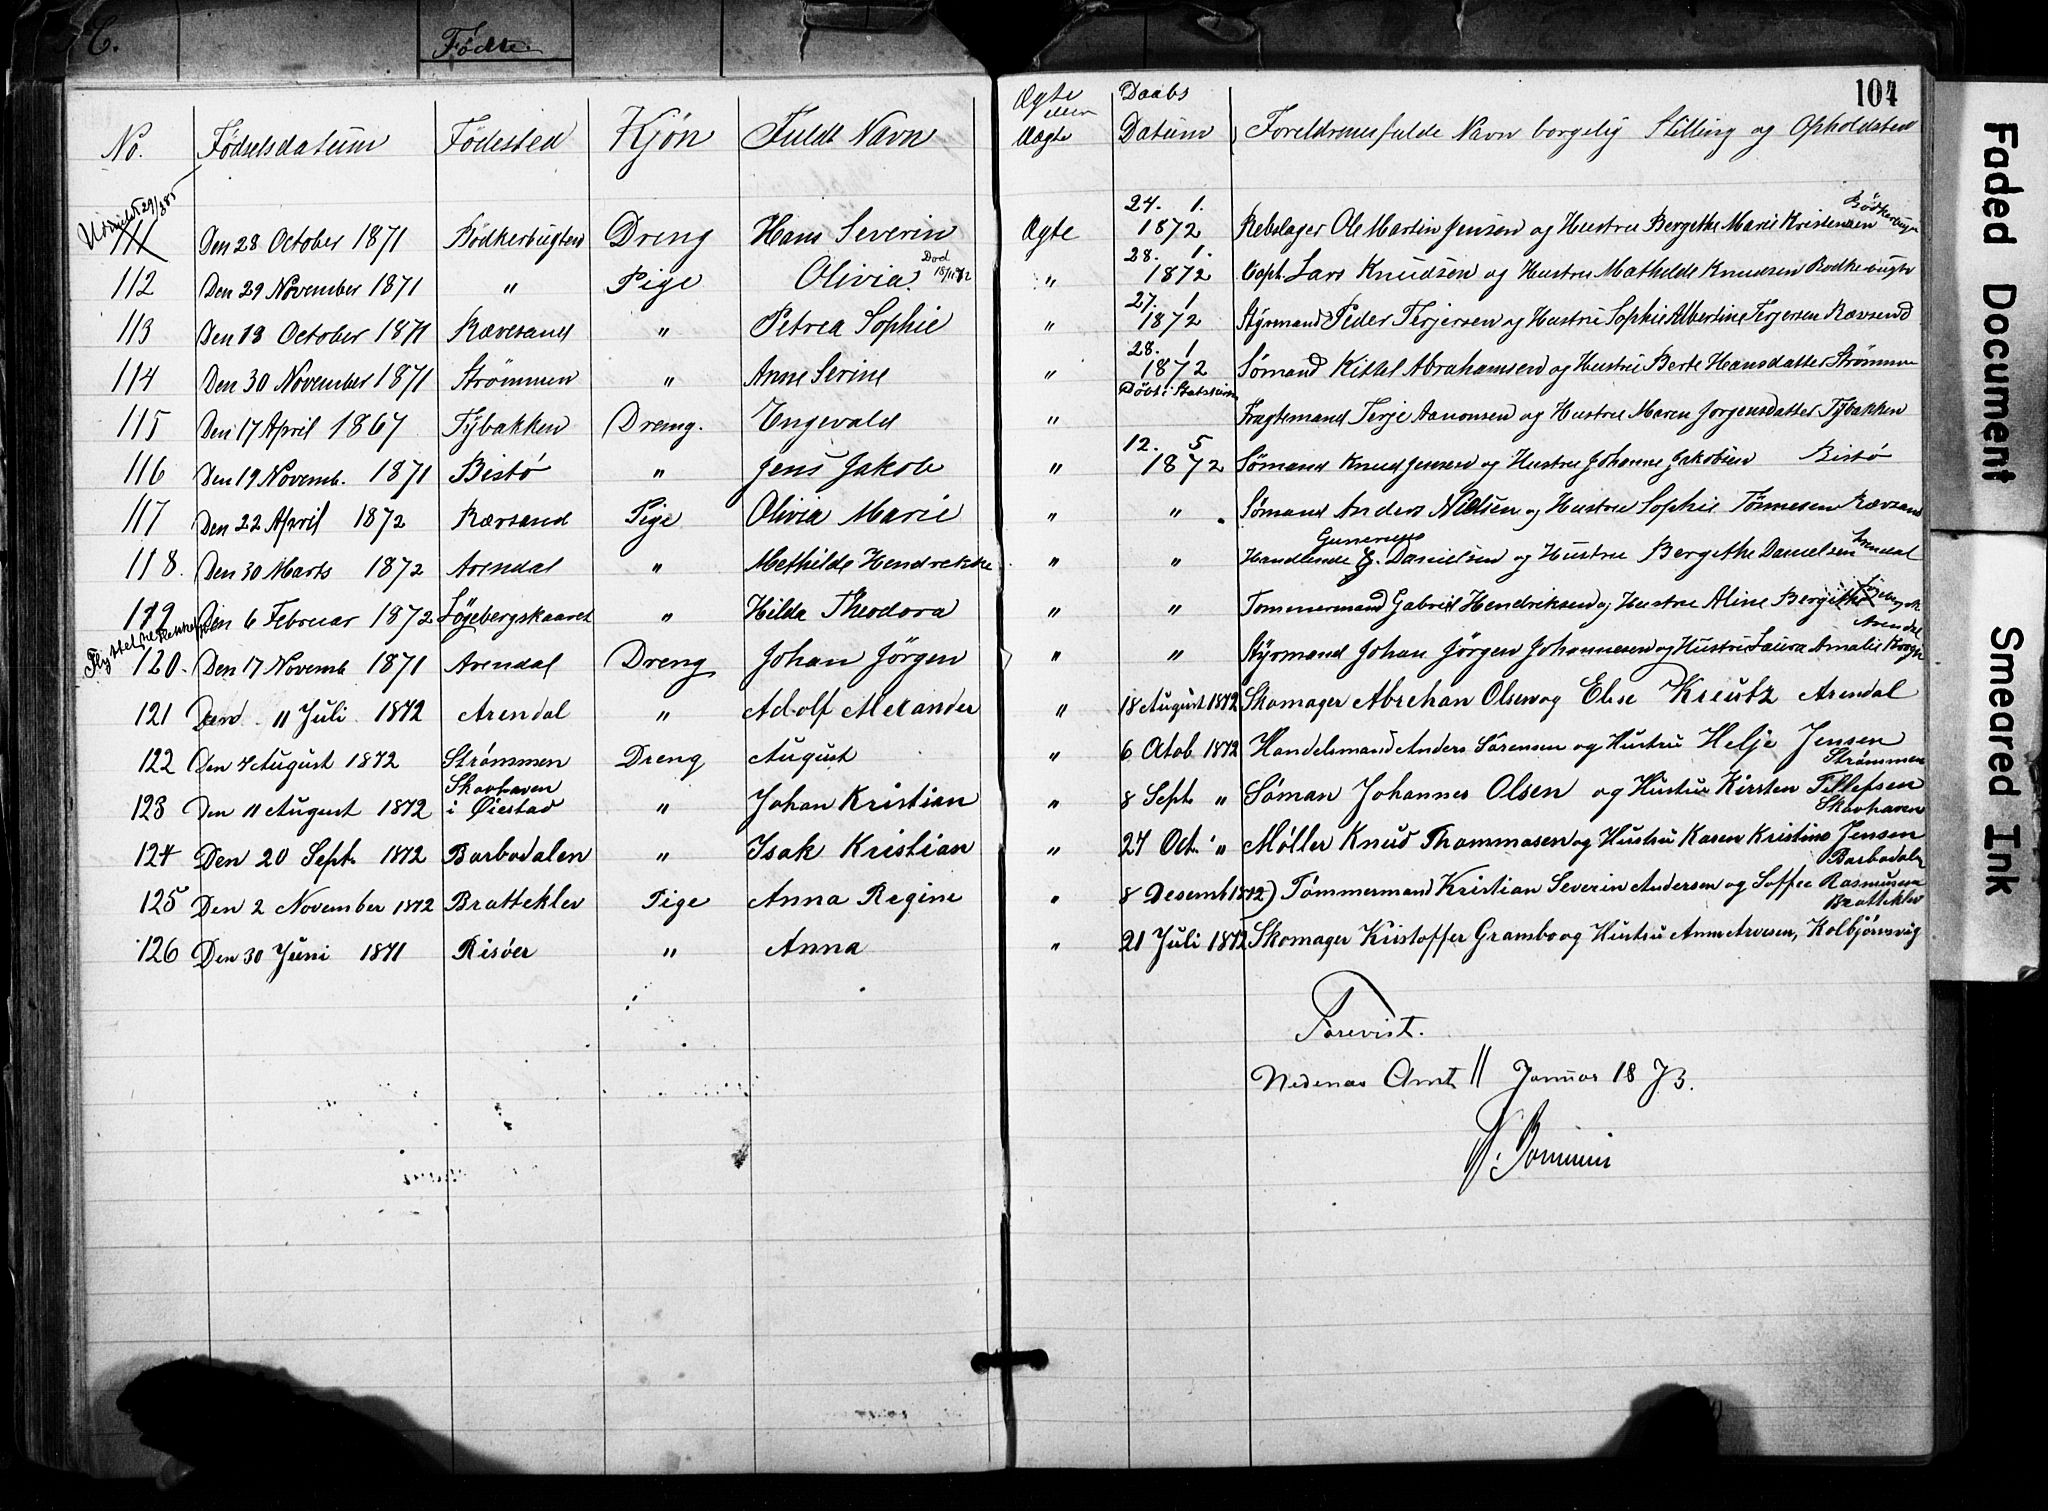 C.
Fødte.
104
No. Fødselsdatum Fødested Kjøn Fuldt Navn Ægte eller Uægte Daabs Datum Foreldrenes fulde Navn borgelig Stilling og Opholdsted
111 Den 28 October 1871 Bödkerbugten Dreng Hans Severin Ægte 24. 1. 1872 Rebslager Ole Martin Jensen og Hustru Bergethe Marie Kristensen Bödkerbugt
112 Den 29 November 1871 " Pige Olivia. Død " 28. 1. 1872 Capt. Lars Knudsen og Hustru Mathilde Knudsen Bödkebugt
113 Den 13 October 1871 Rævesand " Petrea Sophie " 27. 1 1872 Styrmand Peder Terjersen og Hustru Sophie Albertine Terjersen Rævsand
114 Den 30 November 1871 Strömmen " Anne Serine " 28. 1 1872 Sømand Kittel Abrahamsen og Hustru Berte Hansdatter Strömmen
115 Den 17 April 1867 Tybakken Dreng. Engevald " Döbt i Statskirken Fragtemand Terje Aanonsen og Hustru Maren Jorgensdatter Tybakken
116 Den 19 Novemb. 1871 Bistö " Jens Jakob " 12. 5 1872 Sømand Knud Jensen og Hustru Johanne Jakobsen Bistö
117 Den 22 April 1872 Rævsand Pige Olivia Marie " " Sømand Anders Nielsen og Hustru Sophie Tönnesen Rævsand
118. Den 30 Marts 1872 Arendal " Methilde Hendrekke " " Handlende G. Danielsen og Hustru Bergethe Danielsen Arendal
119 Den 6 Februar 1872 Lögebergskaaret " Hilda Theodora " " Tommermand Gabriel Hendriksen og Hustru Aline Bergithe
Flyttet
120. Den 17 Novemb 1871 Arendal Dreng Johan Jörgen " " Styrmand Johan Jörgen Johannesen og Hustru Laura Amalie Arendal
121 Den " Juli 1872 Arendal " Adolf Alexander " 18 August 1872 Skomager Abrehan Olsen og Elise Kreutz Arendal
122 Den 4 August 1872 Strømmen Dreng August " 6 Octob 1872 Handelsmand Anders Sörensen og Hustru Helje Jensen Strømmen
123 Den 11 August 1872 Skovhaven i Øiestad " Johan Kristian " 8 Sept. " Søman Johannes Olsen og Hustru Kirsten Tellefsen Skovhaven
124 Den 20 Sept. 1872 Barbodalen " Isak Kristian " 27 Oct. " Møller Knud Thommasen og Hustru Karen Kristine Jensen Barbodalen
125 Den 2 November 1872 Bratteklev Pige Anna Regine " 8 Desemb 1872) Tømmermand Kristian Severin Andersen og Soffie Rasmusen Bratteklev
126 Den 30 Juni 1871 Risöer " Anna " 21 Juli 1872 Skomager Kristoffer Gramsbo og Hustru Anne Arvesen, Kolbjörnsvig
Forevist.
Nedenæs Amt 11 Januar 1873.
Faded Document
Smeared Ink